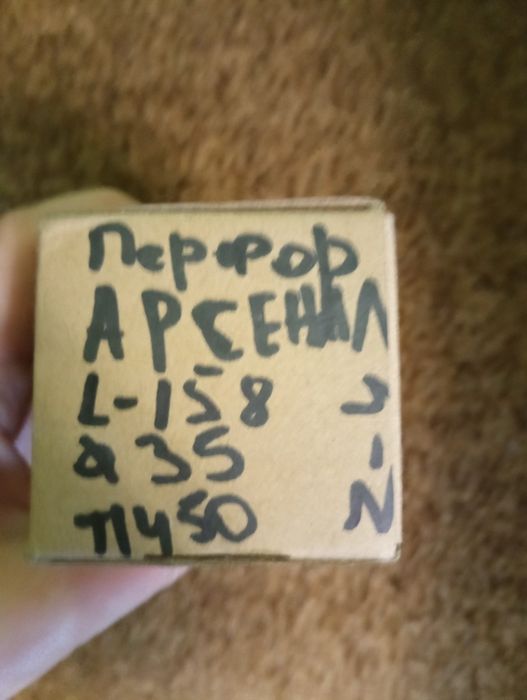 Перфор
АРСЕНАЛ
L-158
ø35
ПУ50